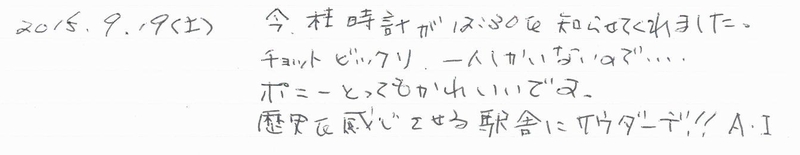 2015.9.19(土) 今、柱時計が12:30を知らせてくれました。
チョットビックリ、一人しかいないので‥‥
ポニーとってもかわいいです。
歴史を感じさせる駅舎にサウダーデ!! A.I